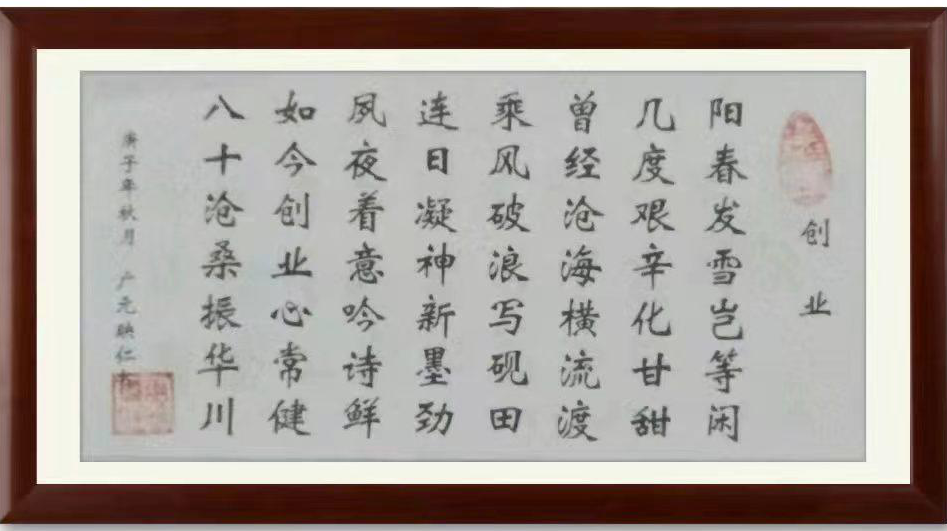 创业
阳春发雪岂等闲
几度艰辛化甘甜
曾经沧海横流渡
乘风破浪写砚田
连日凝神新墨劲
夙夜着意吟诗鲜
如今创业心常健
八十沧桑振华川
庚子年秋月 广元映仁